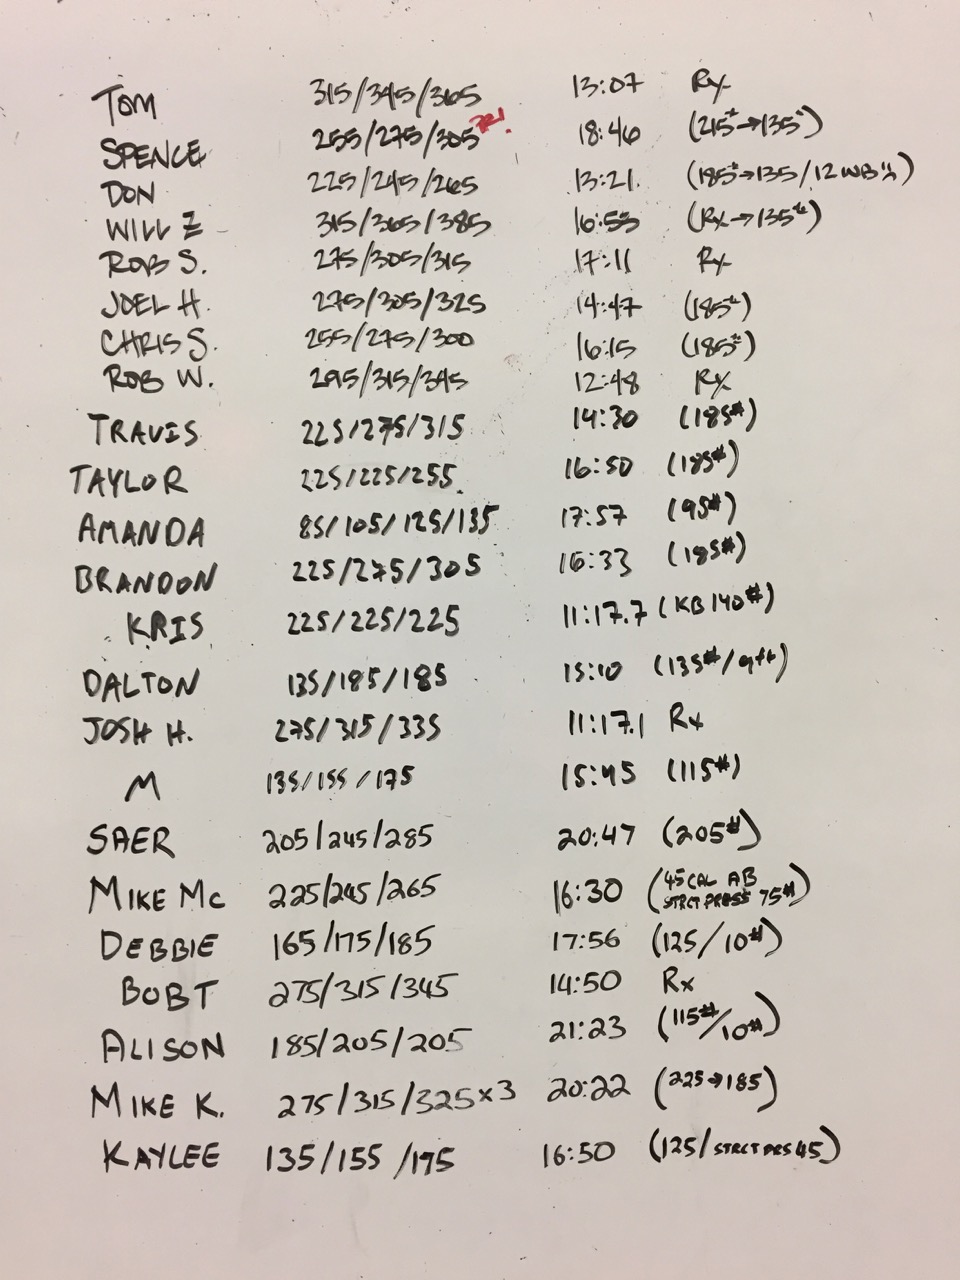 TOM 315/345/365 13:07 Rx
SPENCE 255/275/305 PR! 18:46 (215#→135#)
DON 225/245/265 13:21. (185#→135/12 WB's)
WILL Z 315/365/385 16:55 (Rx→135#)
ROB S. 275/305/315 17:11 Rx
JOEL H. 275/305/325 14:47 (185#)
CHRIS S. 255/275/300 16:15 (185#)
ROB W. 295/315/345 12:48 Rx
TRAVIS 225/275/315 14:30 (185#)
TAYLOR 225/225/255. 16:50 (185#)
AMANDA 85/105/125/135 17:57 (95#)
BRANDON 225/275/305 16:33 (185#)
KRIS 225/225/225 11:17.7 (KB 140#)
DALTON 135/185/185 15:10 (135#/9ft)
JOSH H. 275/315/335 11:17.1 Rx
M 135/155/175 15:45 (115#)
SAER 205/245/285 20:47 (205#)
MIKE MC 225/245/265 16:30 (45 CAL AB STRCT PRESS 75#)
DEBBIE 165/175/185 17:56 (125/10#)
BOBT 275/315/345 14:50 Rx
ALISON 185/205/205 21:23 (115#/10#)
MIKE K. 275/315/325x3 20:22 (225→185)
KAYLEE 135/155/175 16:50 (125/STRCT PRS 45)